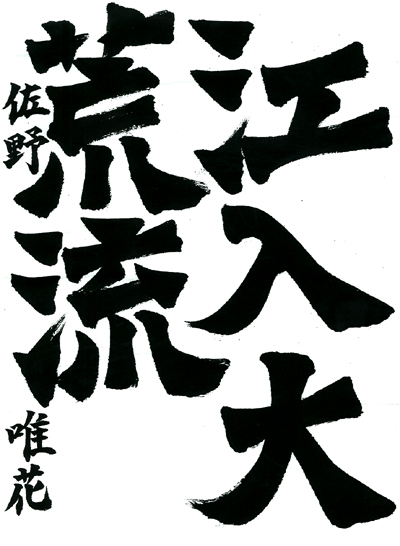 江入大
荒流
佐野唯花